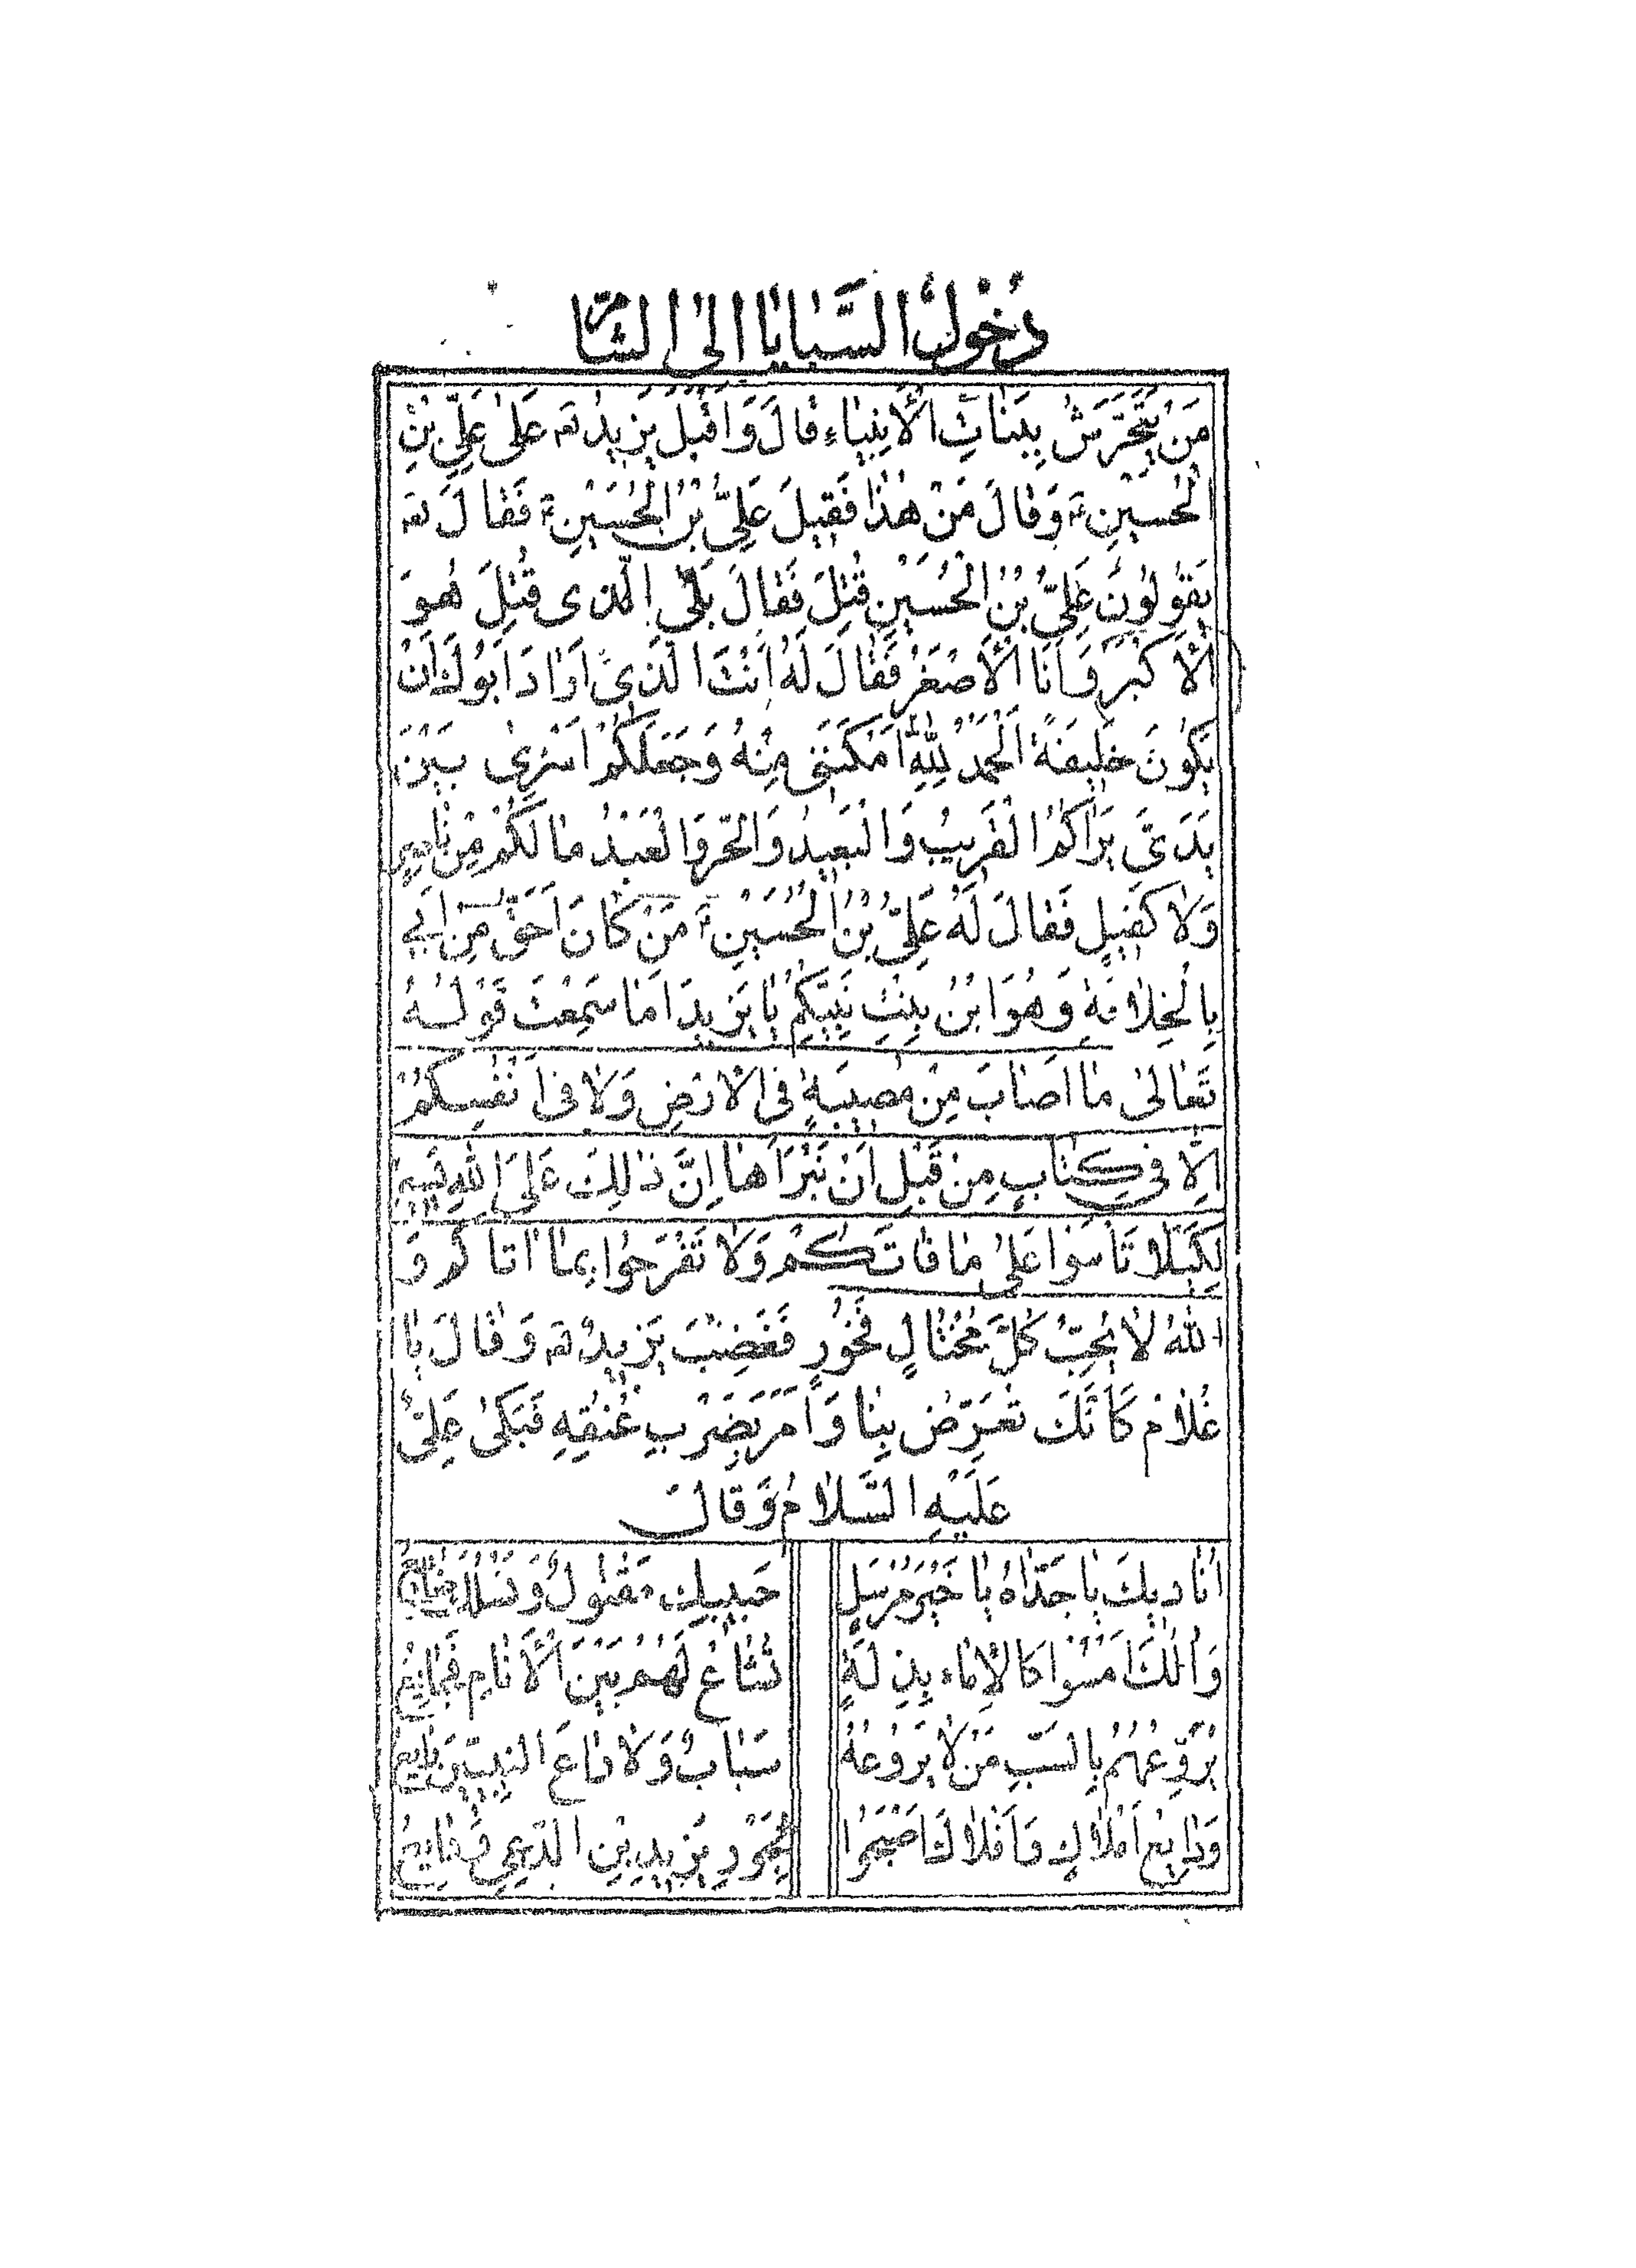 دُخُولُ السَّبَايَا اِلَى الشَّامِ
مَنْ يَتَحَرَّشُ بِبَنَاتِ الْأَنْبِيَاءِ قَالَ وَاَقْبَلَ يَزِيدُ لع عَلٰى عَلِيِّ بْنِ
الْحُسَيْنِ ع وَقَالَ مَنْ هٰذَا فَقِيلَ عَلِيُّ بْنُ الْحُسَيْنِ ع فَقَالَ لع
يَقُولُونَ عَلِيُّ بْنُ الْحُسَيْنِ قُتِلَ فَقَالَ بَلَى الَّذِى قُتِلَ هُوَ
الْأَكْبَرُ وَاَنَا الْأَصْغَرُ فَقَالَ لَهُ اَنْتَ الَّذِى اَرَادَ اَبُوكَ اَنْ
يَكُونَ خَلِيفَةً اَلْحَمْدُ لِلّٰهِ اَمْكَنَنِى مِنْهُ وَجَعَلَكُمْ اَسْرٰى بَيْنَ
يَدَىَّ يَرَاكُمُ الْقَرِيبُ وَالْبَعِيدُ وَالْحُرُّ وَالْعَبْدُ مَا لَكُمْ مِنْ نَاصِرٍ
وَلَا كَفِيلٍ فَقَالَ لَهُ عَلِىُّ بْنُ الْحُسَيْنِ ع مَنْ كَانَ اَحَقُّ مِنْ اَبِى
بِالْخِلَافَةِ وَهُوَ ابْنُ بِنْتِ نَبِيِّكُمْ يَا يَزِيدَ اَمَا سَمِعْتَ قَوْلَهُ
تَعَالٰى مَا اَصَابَ مِنْ مُصِيبَةٍ فِى الْاَرْضِ وَلَا فِى اَنْفُسِكُمْ
اِلَّا فِى كِتَابٍ مِنْ قَبْلِ اَنْ نَبْرَاَهَا اِنَّ ذٰلِكَ عَلَى اللّٰهِ يَسِيرٌ
لِكَيْلَا تَاْسَوْا عَلٰى مَا فَاتَكُمْ وَلَا تَفْرَحُوا بِمَا اٰتَاكُمْ وَ
اللّٰهُ لَا يُحِبُّ كُلَّ مُخْتَالٍ فَخُورٍ فَغَضِبَ يَزِيدُ لع وَقَالَ يَا
غُلَامُ كَاَنَّكَ تُعَرِّضُ بِنَا وَاَمَرَ بِضَرْبِ عُنُقِهِ فَبَكٰى عَلِىٌّ
عَلَيْهِ السَّلَامُ وَقَالَ
اُنَادِيكَ يَا جَدَّاهُ يَا خَيْرَ مُرْسَلٍ حَبِيبُكَ مَقْتُولٌ وَنَسْلُكَ ضَائِعٌ
وَاٰلُكَ اَمْسَوْا كَالْاِمَاءِ بِذِلَّةٍ تُشَاعُ لَهُمْ بَيْنَ الْأَنَامِ فَجَائِعُ
يُرَوِّعُهُمْ بِالسَّبِّ مَنْ لَا يَرُوعُهُ سَبَابٌ وَلَا رَاعَ النَّبِيِّينَ رَايِعُ
وَدَايِعُ اَمْلَاكٍ وَاَفْلَاكَ اَصْبَحُوا لِجَوْرِ يَزِيدِ بْنِ الدَّعِيِّ وَدَايِعُ